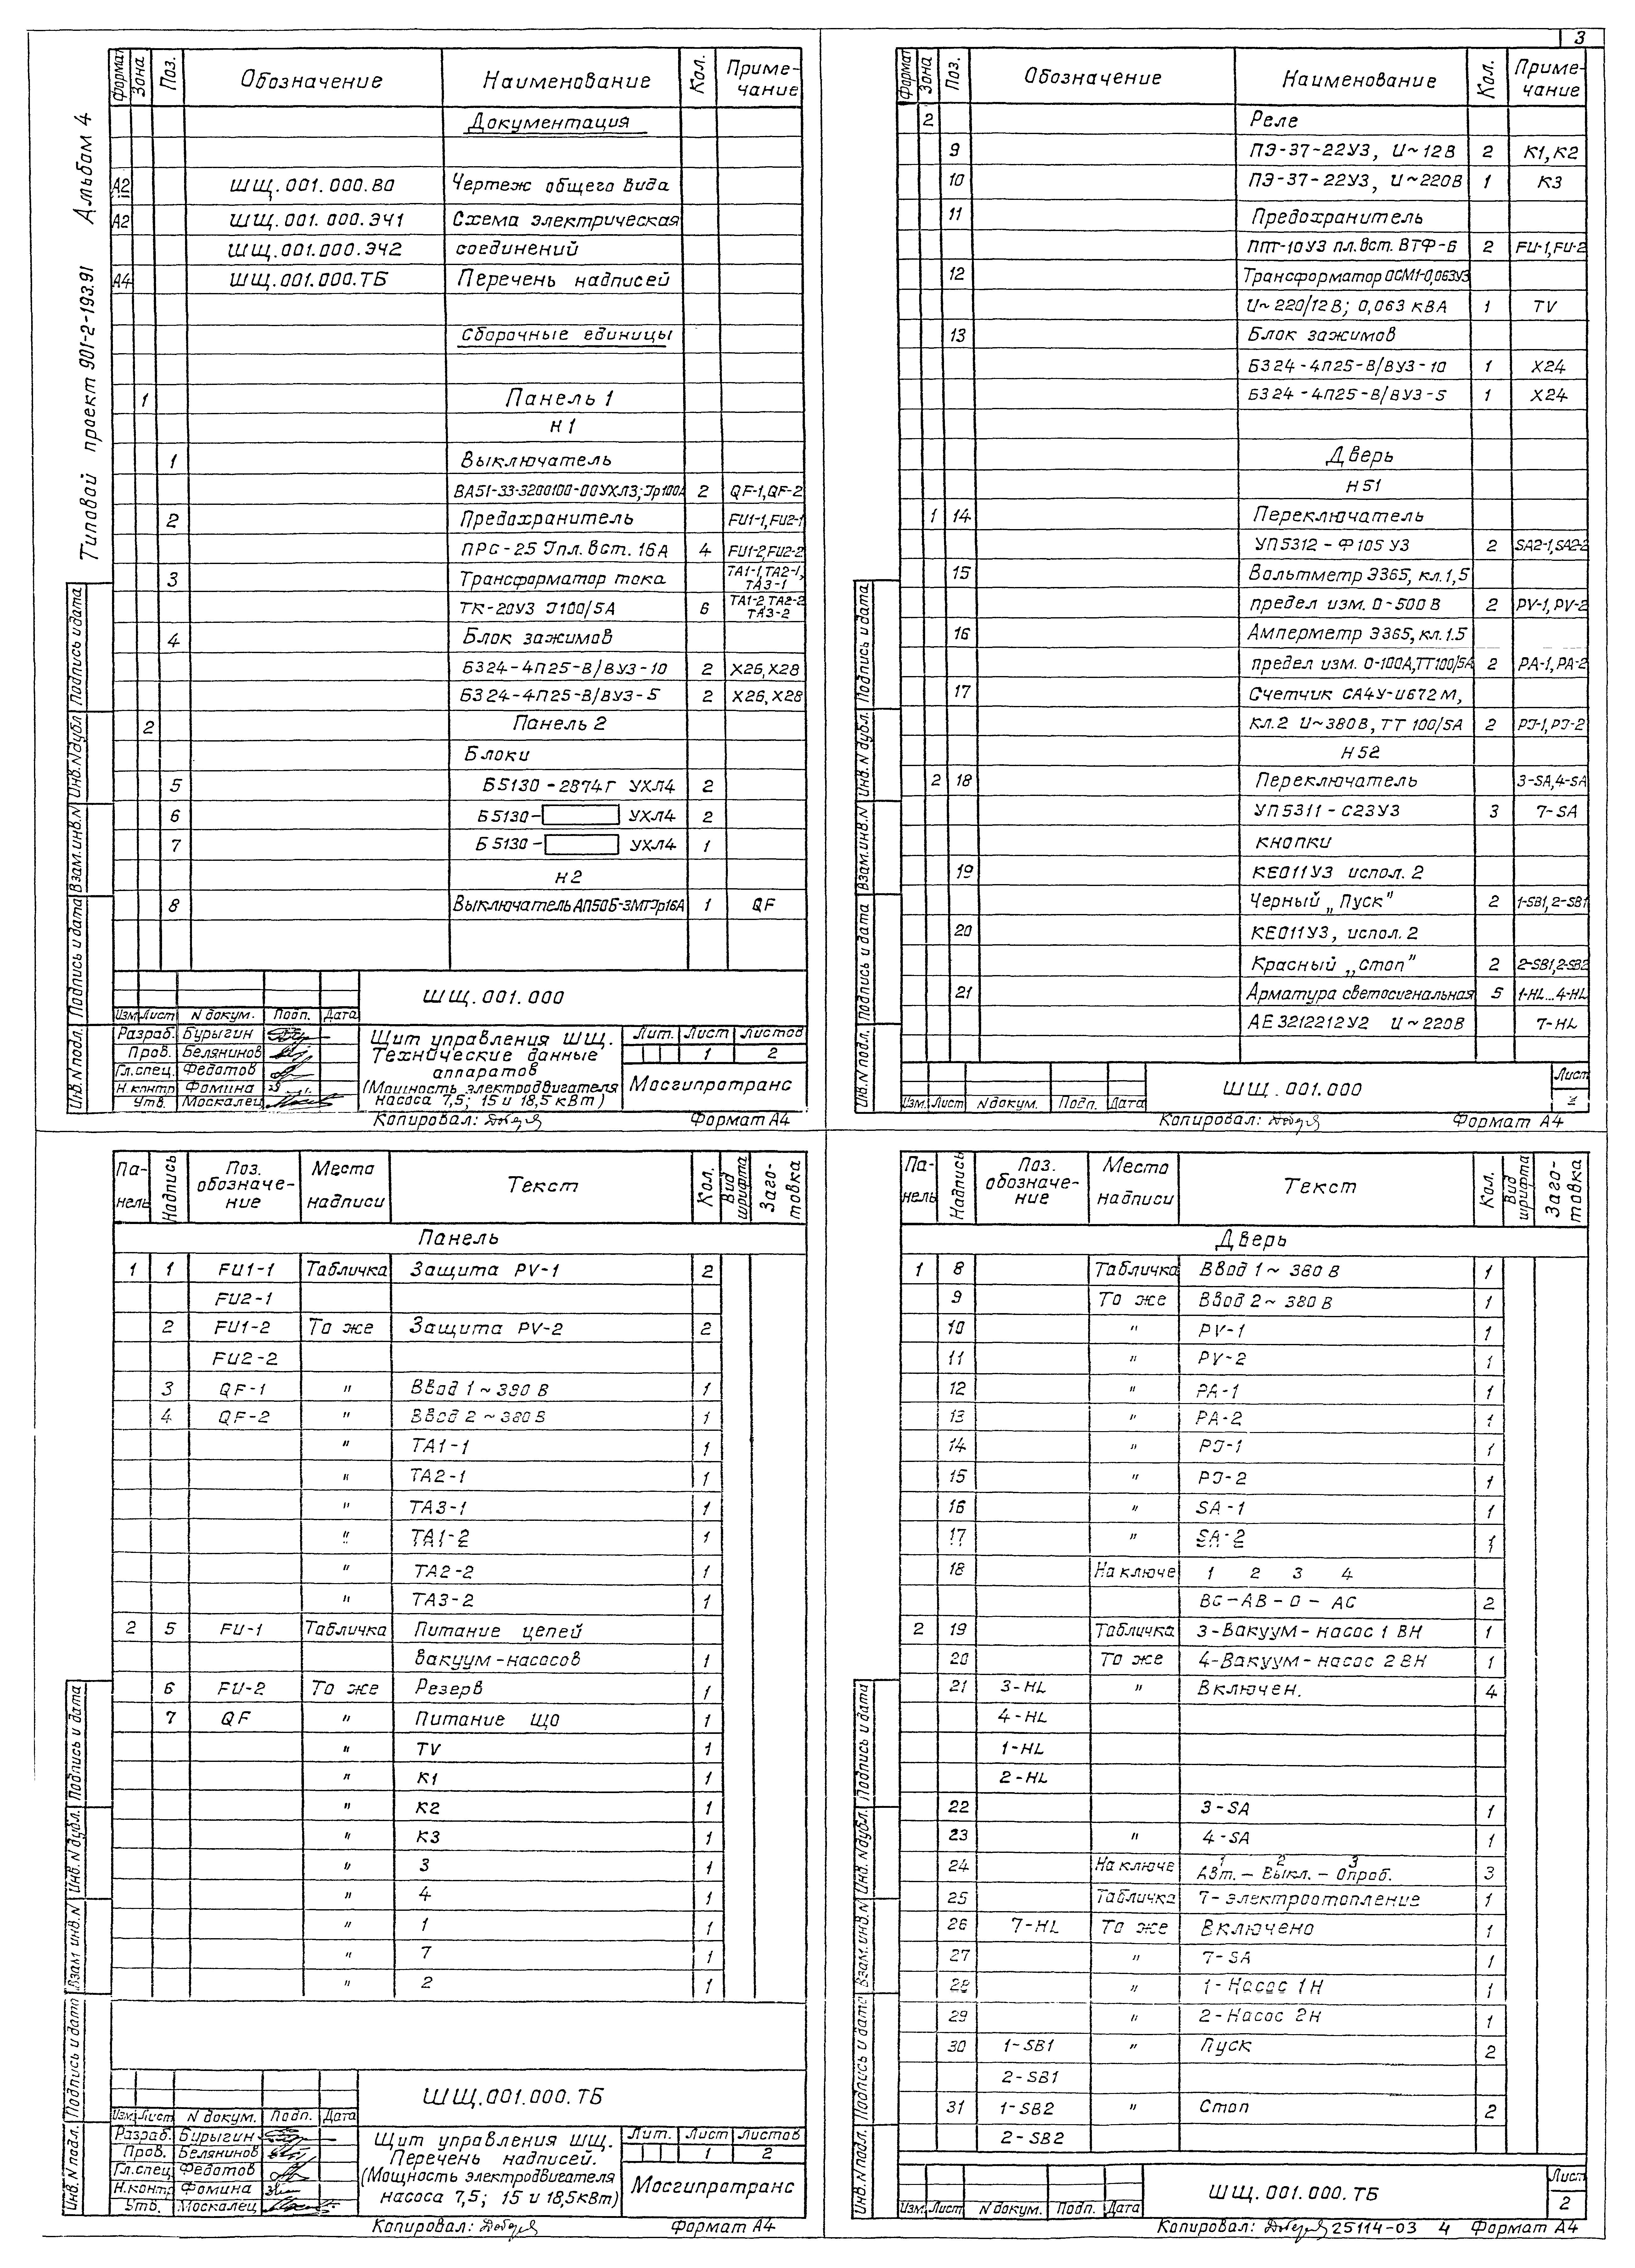 3
Типовой проект 901-2-193.91 Альбом 4
Формат Зона Поз. Обозначение Наименование Кол. Приме-чание
Документация
А2 ШЩ.001.000.ВО Чертеж общего вида
А2 ШЩ.001.000.ЭЧ1 Схема электрическая
ШЩ.001.000.ЭЧ2 соединений
А4 ШЩ.001.000.ТБ Перечень надписей
Сборочные единицы
1 Панель 1
Н1
1 Выключатель
ВА51-33-3200100-00УХЛ3; Jр100А 2 QF-1, QF-2
2 Предохранитель FU1-1, FU2-1
ПРС-25 Jпл. вст. 16А 4 FU1-2, FU2-2
3 Трансформатор тока ТА1-1, ТА2-1, ТА3-1
ТК-20У3 J100/5А 6 ТА1-2, ТА2-2 ТА3-2
4 Блок зажимов
БЗ24-4П25-В/ВУ3-10 2 Х26, Х28
БЗ24-4П25-В/ВУ3-5 2 Х26, Х28
2 Панель 2
Блоки
5 Б5130-2874Г УХЛ4 2
6 Б5130- УХЛ4 2
7 Б5130- УХЛ4 1
Н2
8 Выключатель АП50Б-3МТJр16А 1 QF
ШЩ.001.000
Изм. Лист N докум. Подп. Дата
Разраб. Бурыгин
Пров. Белянинов
Гл.спец. Федотов
Н.контр. Фомина
Утв. Москалец
Щит управления ШЩ.
Технические данные
аппаратов
(Мощность электродвигателя
насоса 7,5; 15 и 18,5 кВт)
Лит. Лист Листов
1 2
Мосгипротранс
Копировал: Формат А4
Инв.N подл. Подпись и дата Взам.инв.N Инв.N дубл. Подпись и дата
Формат Зона Поз. Обозначение Наименование Кол. Приме-чание
2 Реле
9 ПЭ-37-22У3, U~12В 2 К1, К2
10 ПЭ-37-22У3, U~220В 1 К3
11 Предохранитель
ППТ-10У3 пл.вст. ВТФ-6 2 FU-1, FU-2
12 Трансформатор ОСМ1-0,063У3
U~220/12В; 0,063 кВА 1 TV
13 Блок зажимов
БЗ24-4П25-В/ВУ3-10 1 Х24
БЗ24-4П25-В/ВУ3-5 1 Х24
Дверь
Н51
1 14 Переключатель
УП5312-Ф105 У3 2 SA2-1, SA2-2
15 Вольтметр Э365, кл.1,5
предел изм. 0-500 В 2 PV-1, PV-2
16 Амперметр Э365, кл.1.5
предел изм. 0-100А, ТТ100/5А 2 РА-1, РА-2
17 Счетчик СА4У-И672М,
кл.2 U~380В, ТТ 100/5А 2 PJ-1, PJ-2
Н52
2 18 Переключатель 3-SA, 4-SA
УП5311-С23У3 3 7-SA
кнопки
19 КЕ011У3 испол. 2
Черный „Пуск" 2 1-SB1, 2-SB1
20 КЕ011У3, испол. 2
Красный „Стоп" 2 2-SB1, 2-SB2
21 Арматура светосигнальная 5 1-HL...4-HL
АЕ3212212У2 U~220В 7-HL
ШЩ.001.000
Лист
Изм. Лист N докум. Подп. Дата
Копировал: Формат А4
Инв.N подл. Подпись и дата Взам.инв.N Инв.N дубл. Подпись и дата
Па-нель Надпись Поз. обозначе-ние Место надписи Текст Кол. Вид шрифта Заго-товка
Панель
1 1 FU1-1 Табличка Защита PV-1 2
FU2-1
2 FU1-2 То же Защита PV-2 2
FU2-2
3 QF-1 " Ввод 1 ~ 380 В 1
4 QF-2 " Ввод 2 ~ 380 В 1
" ТА1-1 1
" ТА2-1 1
" ТА3-1 1
" ТА1-2 1
" ТА2-2 1
" ТА3-2 1
2 5 FU-1 Табличка Питание цепей
вакуум-насосов 1
6 FU-2 То же Резерв 1
7 QF " Питание ЩО 1
" TV 1
" К1 1
" К2 1
" К3 1
" 3 1
" 4 1
" 1 1
" 7 1
" 2 1
ШЩ.001.000.ТБ
Изм. Лист N докум. Подп. Дата
Разраб. Бурыгин
Пров. Белянинов
Гл.спец. Федотов
Н.контр. Фомина
Утв. Москалец
Щит управления ШЩ.
Перечень надписей.
(Мощность электродвигателя
насоса 7,5; 15 и 18,5кВт)
Лит. Лист Листов
1 2
Мосгипротранс
Копировал: Формат А4
Инв.N подл. Подпись и дата Взам.инв.N Инв.N дубл. Подпись и дата
Па-нель Надпись Поз. обозначе-ние Место надписи Текст Кол. Вид шрифта Заго-товка
Дверь
1 8 Табличка Ввод 1 ~ 380 В 1
9 То же Ввод 2 ~ 380 В 1
10 " PV-1 1
11 " PV-2 1
12 " РА-1 1
13 " РА-2 1
14 " PJ-1 1
15 " PJ-2 1
16 " SA-1 1
17 " SA-2 1
18 На ключе 1 2 3 4
ВС-АВ-0-АС 2
2 19 Табличка 3-Вакуум-насос 1 ВН 1
20 То же 4-Вакуум-насос 2 ВН 1
21 3-HL " Включен. 4
4-HL
1-HL
2-HL
22 3-SA 1
23 " 4-SA 1
24 На ключе 1 2 3 Авт.-Выкл.-Опроб. 3
25 Табличка 7-электроотопление 1
26 7-HL То же Включено 1
27 " 7-SA 1
28 " 1-Насос 1Н 1
29 " 2-Насос 2Н 1
30 1-SB1 " Пуск 2
2-SB1
31 1-SB2 " Стоп 2
2-SB2
ШЩ.001.000.ТБ
Лист
2
Изм. Лист N докум. Подп. Дата
Копировал: 25114-03 4 Формат А4
Инв.N подл. Подпись и дата Взам.инв.N Инв.N дубл. Подпись и дата